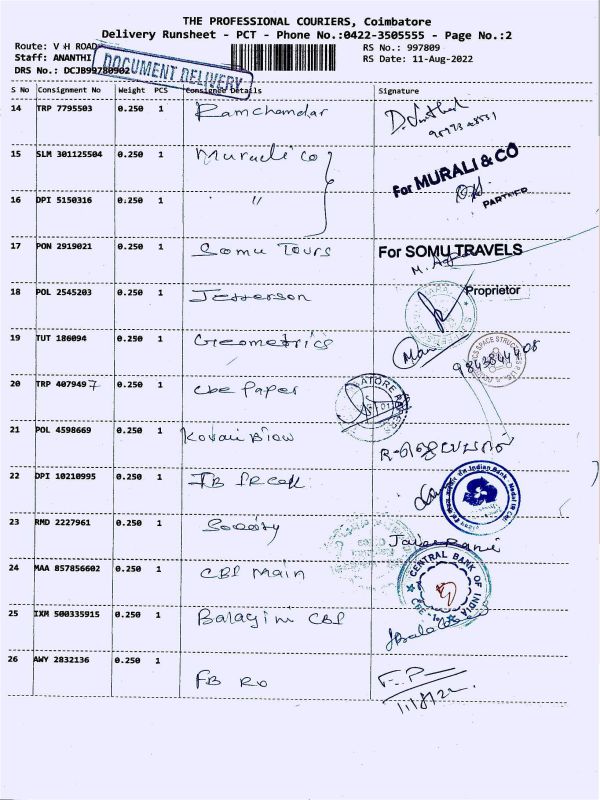 THE PROFESSIONAL COURIERS, Coimbatore
Delivery Runsheet - PCT - Phone No.:0422-3505555 - Page No.:2
Route: V H ROAD RS No.: 997809
Staff: ANANTHI RS Date: 11-Aug-2022
DRS No.: DCJB99780902
DOCUMENT DELIVERY
S No Consignment No Weight PCS Consignee Details Signature
14 TRP 7795503 0.250 1 Ramchandar
15 SLM 301125504 0.250 1 Murali Co
For MURALI & CO
PARTNER
16 DPI 5150316 0.250 1 " "
17 PON 2919021 0.250 1 Somu Tours For SOMU TRAVELS
Proprietor
18 POL 2545203 0.250 1 Jefferson
19 TUT 186094 0.250 1 Geometrics
9843844408
20 TRP 4079497 0.250 1 Cbe Paper
21 POL 4598669 0.250 1 Kovai Biou
22 DPI 10210995 0.250 1 IB
Indian Bank
23 RMD 2227961 0.250 1 Society
24 MAA 857856602 0.250 1 CBI Main
CENTRAL BANK OF INDIA
25 IXM 500335915 0.250 1 Balagini CBI
26 AWY 2832136 0.250 1 FB RO
11/8/22